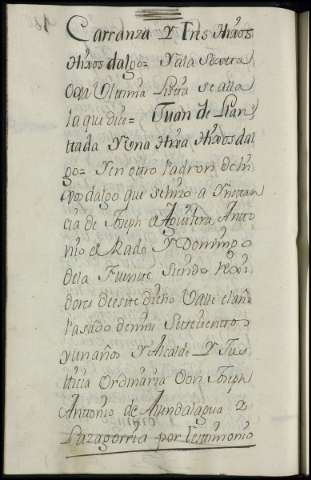 Carranza Y Tres Hixos
Hixos dalgo= Y a la Sesenta
Oya Ultima Linea se alla
la que dice= Juan de Llan
tada Y una Hixa Hixos dal
go= Y en otro Padron de hi
xos dalgo que se hizo a Ynstan
cia de Joseph el Aguilera, Anto
nio el Rado, Y Domingo
de la Fuente, Siendo Rexi
dores de este dicho Valle el año
Pasado de mil Setecientos
y un años Y Alcalde Y Jus
ticia Ordinaria Don Joseph
Antonio de Avendalagua Y
Lazagorria por Testimonio